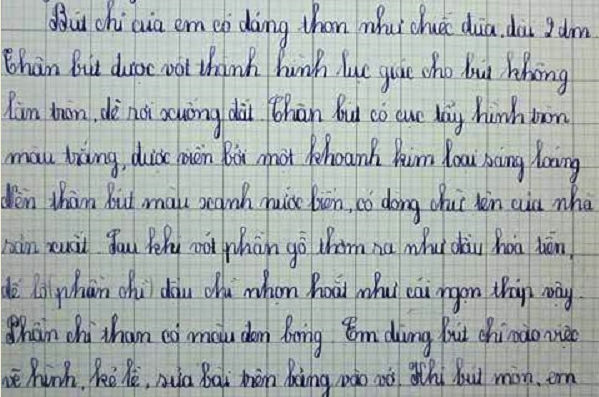 Bút chì của em có dáng thon như chiếc đũa, dài 2 dm
Thân bút được vót thành hình lục giác cho bút không
lăn tròn, dễ rơi xuống đất. Thân bút có cục tẩy hình tròn
màu trắng, được viền bởi một khoanh kim loại sáng loáng
Nền thân bút màu xanh nước biển, có dòng chữ tên của nhà
sản xuất. Sau khi vót phần gỗ thơm ra như dầu hoả tiễn,
để lộ (phần chì) đầu chì nhọn hoắt như cái ngọn tháp vậy
Phần chì than có màu đen bóng. Em dùng bút chì vào việc
vẽ hình, kẻ lề, sửa bài trên bảng vào vở. Khi bút mòn, em